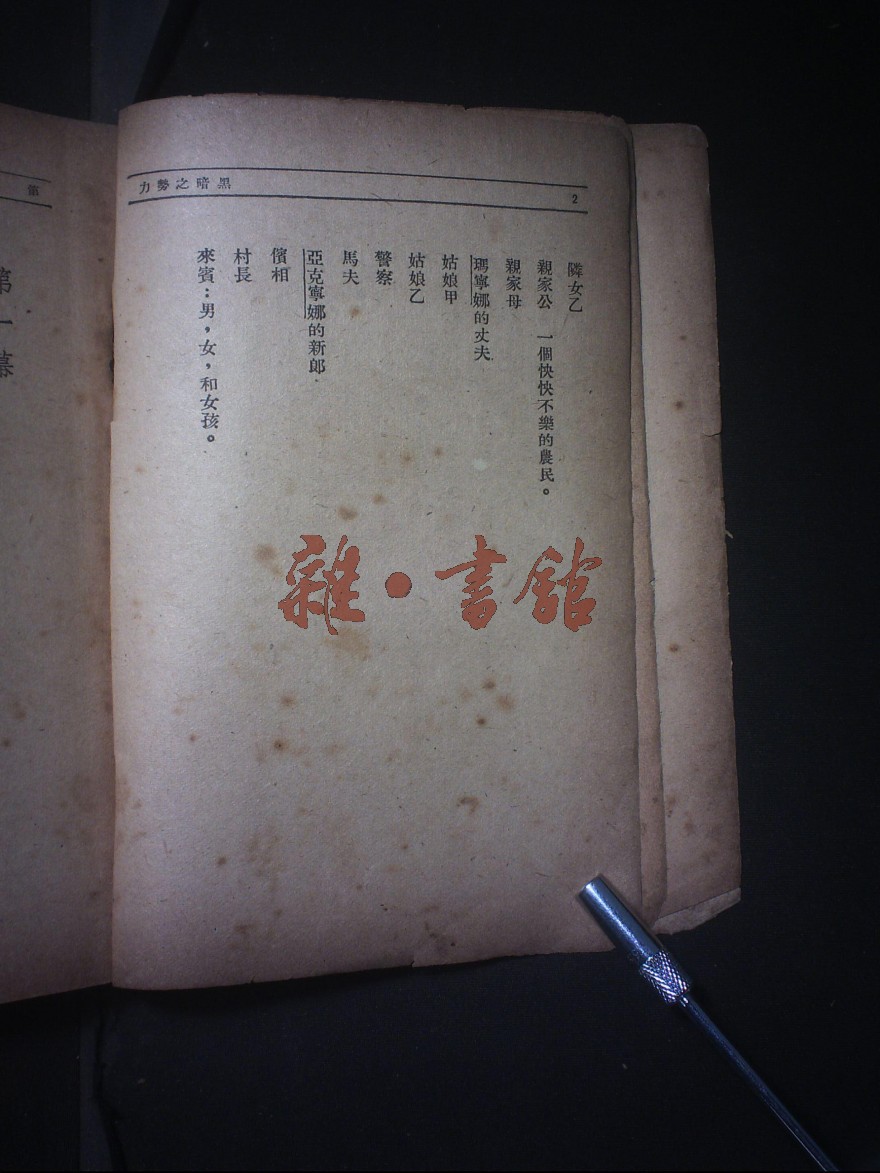 黑暗之勢力
2
隣女乙
親家公 一個怏怏不樂的農民。
親家母
瑪寧娜的丈夫
姑娘甲
姑娘乙
警察
馬夫
亞克寧娜的新郎
儐相
村長
來賓：男，女，和女孩。
雜·書館
第
第一幕